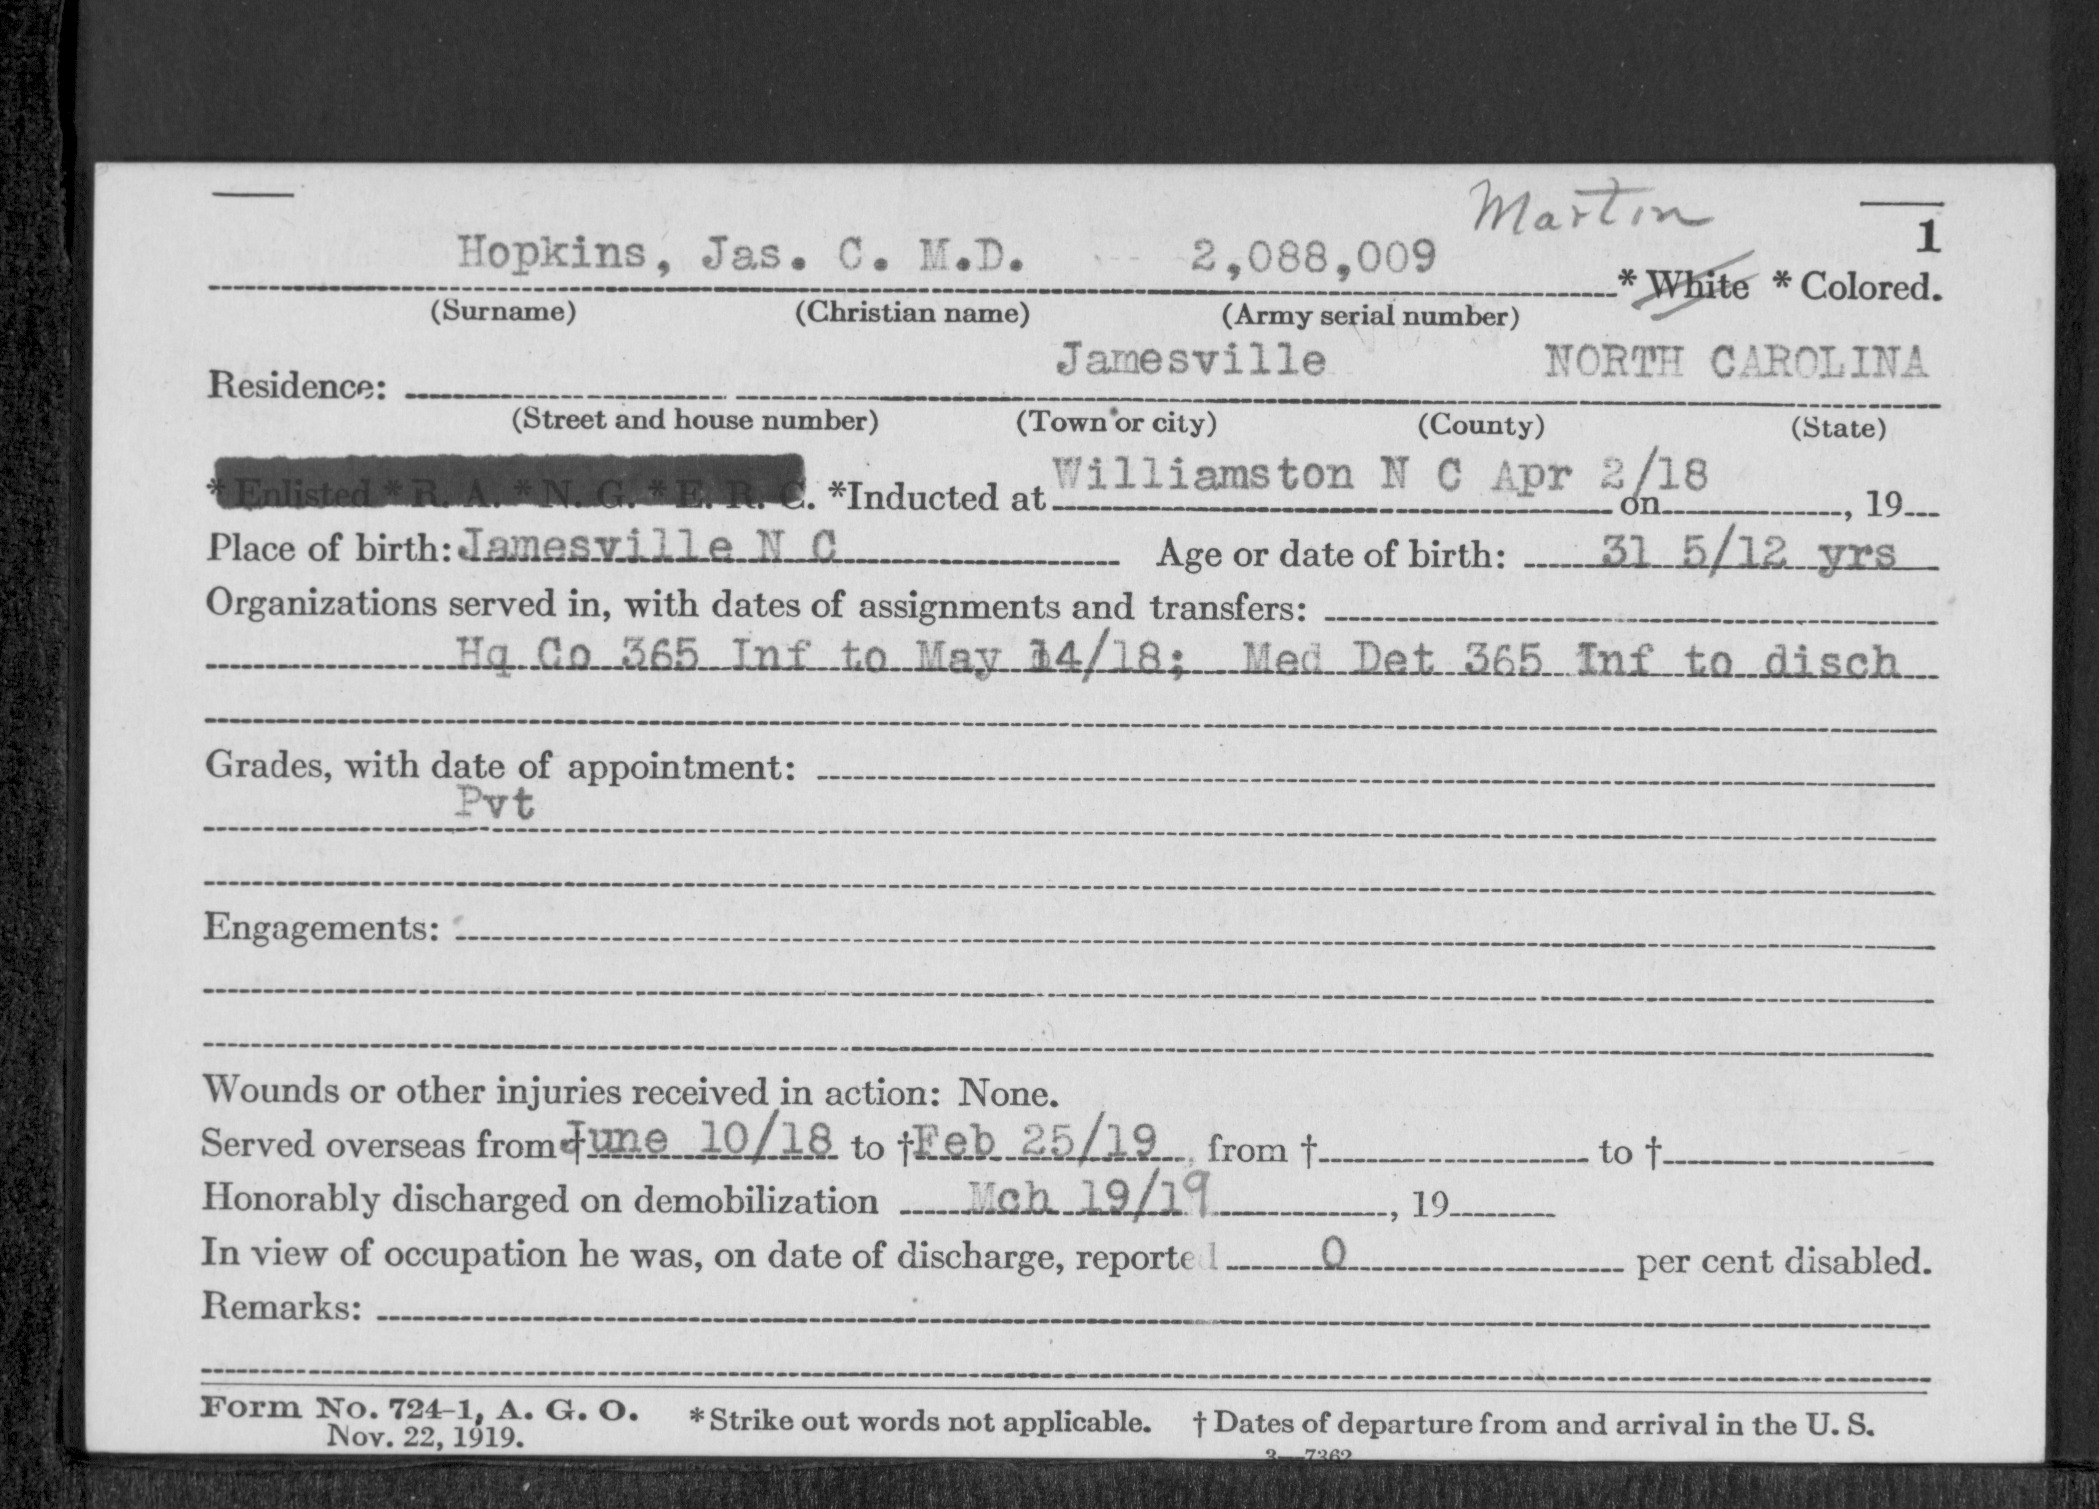 Martin
1
Hopkins, Jas. C. M.D. 2,088,009 * White * Colored.
(Surname) (Christian name) (Army serial number)
Residence: Jamesville NORTH CAROLINA
(Street and house number) (Town or city) (County) (State)
* Enlisted * R. A. * N. G. * E. R. C. *Inducted at Williamston N C Apr 2/18 on , 19
Place of birth: Jamesville N C Age or date of birth: 31 5/12 yrs
Organizations served in, with dates of assignments and transfers:
Hq Co 365 Inf to May 14/18; Med Det 365 Inf to disch
Grades, with date of appointment:
Pvt
Engagements:
Wounds or other injuries received in action: None.
Served overseas from † June 10/18 to † Feb 25/19 , from † to †
Honorably discharged on demobilization Mch 19/19 , 19
In view of occupation he was, on date of discharge, reported 0 per cent disabled.
Remarks:
Form No. 724-1, A. G. O. * Strike out words not applicable. † Dates of departure from and arrival in the U. S.
Nov. 22, 1919.
3—7362